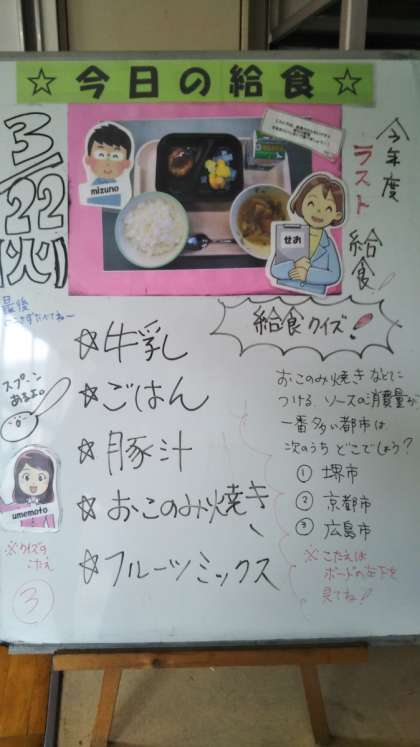 ☆ 今日の給食 ☆
3/22(火)
今年度
ラスト
給食!
mizuno
せお
最後
スプーン
あるよ。
umemoto
☆牛乳
☆ごはん
☆豚汁
☆おこのみ焼き
☆フルーツミックス
給食クイズ!
おこのみ焼きなどに
つける、ソースの消費量が
一番多い都市は
次のうちどこでしょう?
① 堺市
② 京都市
③ 広島市
※こたえは
ボードの左下を
見てね!
※クイズの
こたえ
③